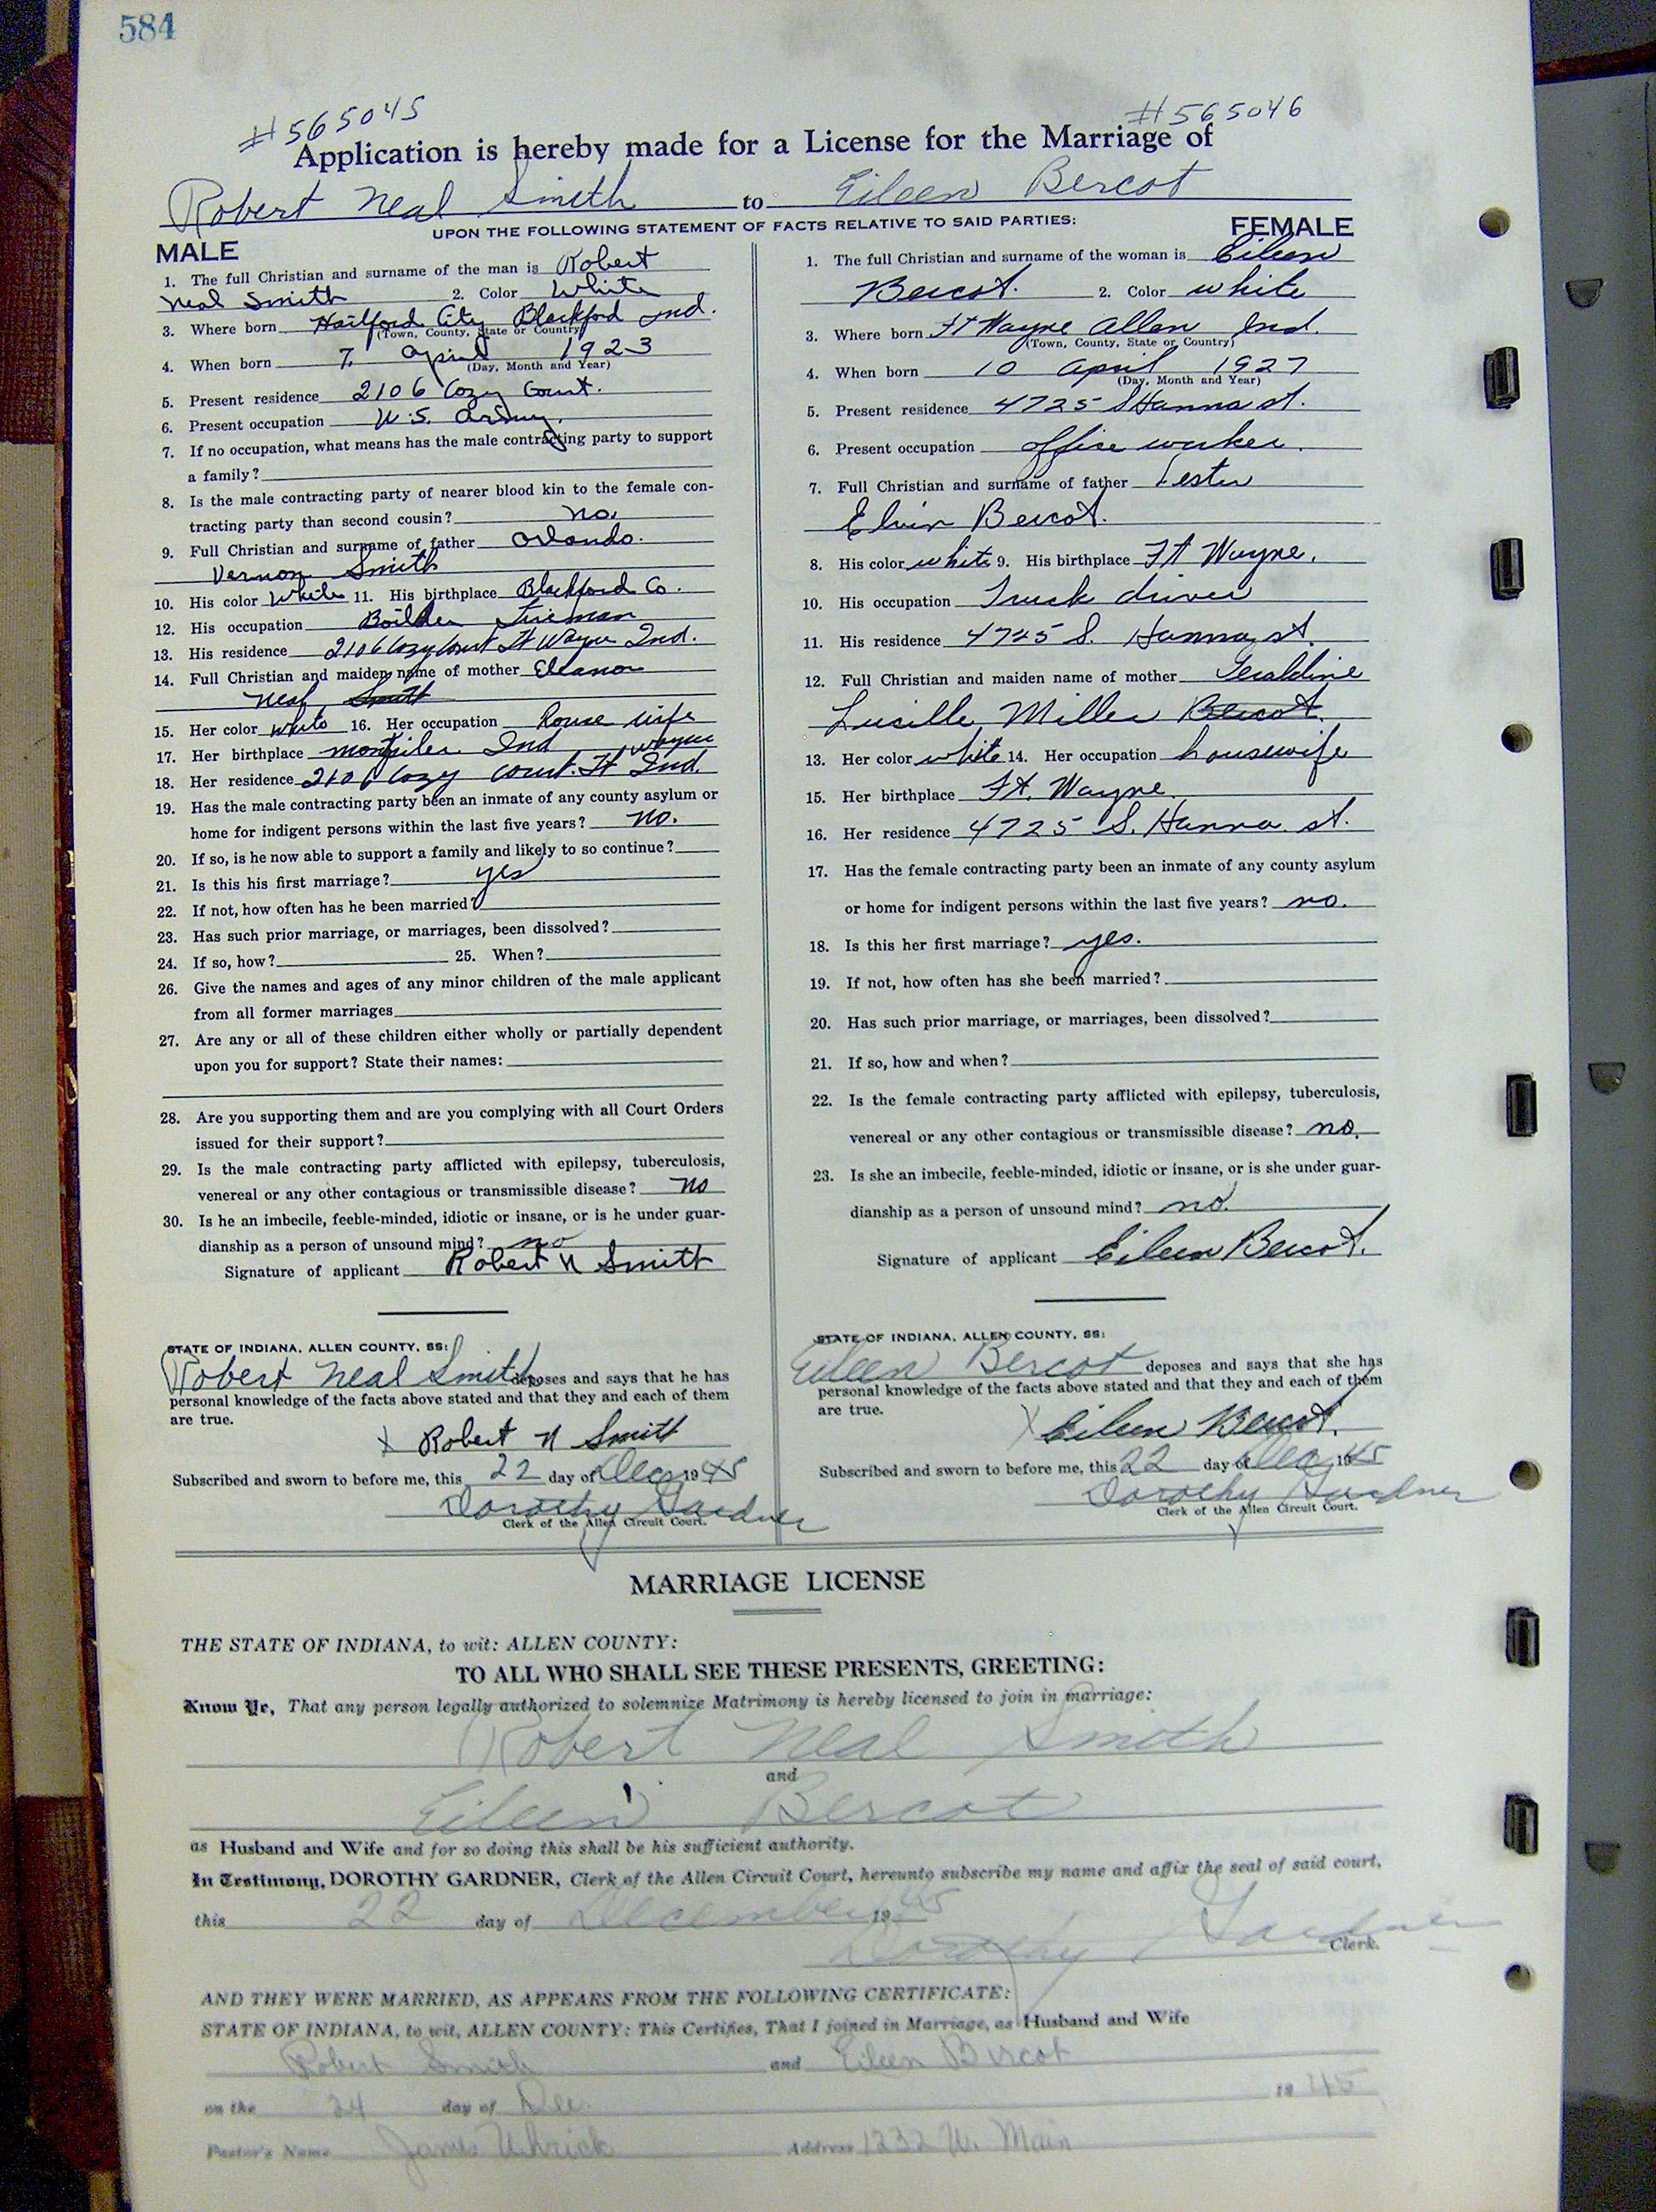 584
#565045 #565046
Application is hereby made for a License for the Marriage of
Robert Neal Smith to Eileen Bercot
UPON THE FOLLOWING STATEMENT OF FACTS RELATIVE TO SAID PARTIES:
MALE
1. The full Christian and surname of the man is Robert
Neal Smith 2. Color White
3. Where born Hartford City Blackford Ind.
(Town, County, State or Country)
4. When born 7. April 1923
(Day, Month and Year)
5. Present residence 2106 Cozy Court.
6. Present occupation U.S. Army.
7. If no occupation, what means has the male contracting party to support
a family?
8. Is the male contracting party of nearer blood kin to the female con-
tracting party than second cousin? no.
9. Full Christian and surname of father Orlando.
Vernon Smith
10. His color White 11. His birthplace Blackford Co.
12. His occupation Boiler Fireman
13. His residence 2106 Cozy Court Ft Wayne Ind.
14. Full Christian and maiden name of mother Eleanor
Neal Smith
15. Her color white 16. Her occupation house wife
17. Her birthplace Montpiler Ind
18. Her residence 2106 Cozy Court. Ft Wayne Ind.
19. Has the male contracting party been an inmate of any county asylum or
home for indigent persons within the last five years? no.
20. If so, is he now able to support a family and likely to so continue?
21. Is this his first marriage? yes
22. If not, how often has he been married?
23. Has such prior marriage, or marriages, been dissolved?
24. If so, how? 25. When?
26. Give the names and ages of any minor children of the male applicant
from all former marriages
27. Are any or all of these children either wholly or partially dependent
upon you for support? State their names:
28. Are you supporting them and are you complying with all Court Orders
issued for their support?
29. Is the male contracting party afflicted with epilepsy, tuberculosis,
venereal or any other contagious or transmissible disease? no
30. Is he an imbecile, feeble-minded, idiotic or insane, or is he under guar-
dianship as a person of unsound mind? no
Signature of applicant Robert N Smith
STATE OF INDIANA, ALLEN COUNTY, SS:
Robert Neal Smith deposes and says that he has
personal knowledge of the facts above stated and that they and each of them
are true.
X Robert N Smith
Subscribed and sworn to before me, this 22 day of Dec 1945
Dorothy Gardner
Clerk of the Allen Circuit Court.
FEMALE
1. The full Christian and surname of the woman is Eileen
Bercot. 2. Color white
3. Where born Ft Wayne Allen Ind.
(Town, County, State or Country)
4. When born 10 April 1927
(Day, Month and Year)
5. Present residence 4725 S Hanna st.
6. Present occupation office worker.
7. Full Christian and surname of father Lester
Elvin Bercot.
8. His color white 9. His birthplace Ft Wayne.
10. His occupation Truck driver
11. His residence 4725 S. Hanna st.
12. Full Christian and maiden name of mother Geraldine
Lucille Miller Bercot.
13. Her color white 14. Her occupation housewife
15. Her birthplace Ft. Wayne.
16. Her residence 4725 S. Hanna st.
17. Has the female contracting party been an inmate of any county asylum
or home for indigent persons within the last five years? no.
18. Is this her first marriage? yes.
19. If not, how often has she been married?
20. Has such prior marriage, or marriages, been dissolved?
21. If so, how and when?
22. Is the female contracting party afflicted with epilepsy, tuberculosis,
venereal or any other contagious or transmissible disease? no.
23. Is she an imbecile, feeble-minded, idiotic or insane, or is she under guar-
dianship as a person of unsound mind? no.
Signature of applicant Eileen Bercot.
STATE OF INDIANA, ALLEN COUNTY, SS:
Eileen Bercot deposes and says that she has
personal knowledge of the facts above stated and that they and each of them
are true.
X Eileen Bercot.
Subscribed and sworn to before me, this 22 day of Dec 1945
Dorothy Gardner
Clerk of the Allen Circuit Court.
MARRIAGE LICENSE
THE STATE OF INDIANA, to wit: ALLEN COUNTY:
TO ALL WHO SHALL SEE THESE PRESENTS, GREETING:
Know Ye, That any person legally authorized to solemnize Matrimony is hereby licensed to join in marriage:
Robert Neal Smith
and
Eileen Bercot
as Husband and Wife and for so doing this shall be his sufficient authority.
In Testimony, DOROTHY GARDNER, Clerk of the Allen Circuit Court, hereunto subscribe my name and affix the seal of said court,
this 22 day of December 1945
Dorothy Gardner
Clerk.
AND THEY WERE MARRIED, AS APPEARS FROM THE FOLLOWING CERTIFICATE:
STATE OF INDIANA, to wit, ALLEN COUNTY: This Certifies, That I joined in Marriage, as Husband and Wife
Robert Smith and Eileen Bercot
on the 24 day of Dec. 1945
Pastor's Name James Uhrick Address 1232 W. Main